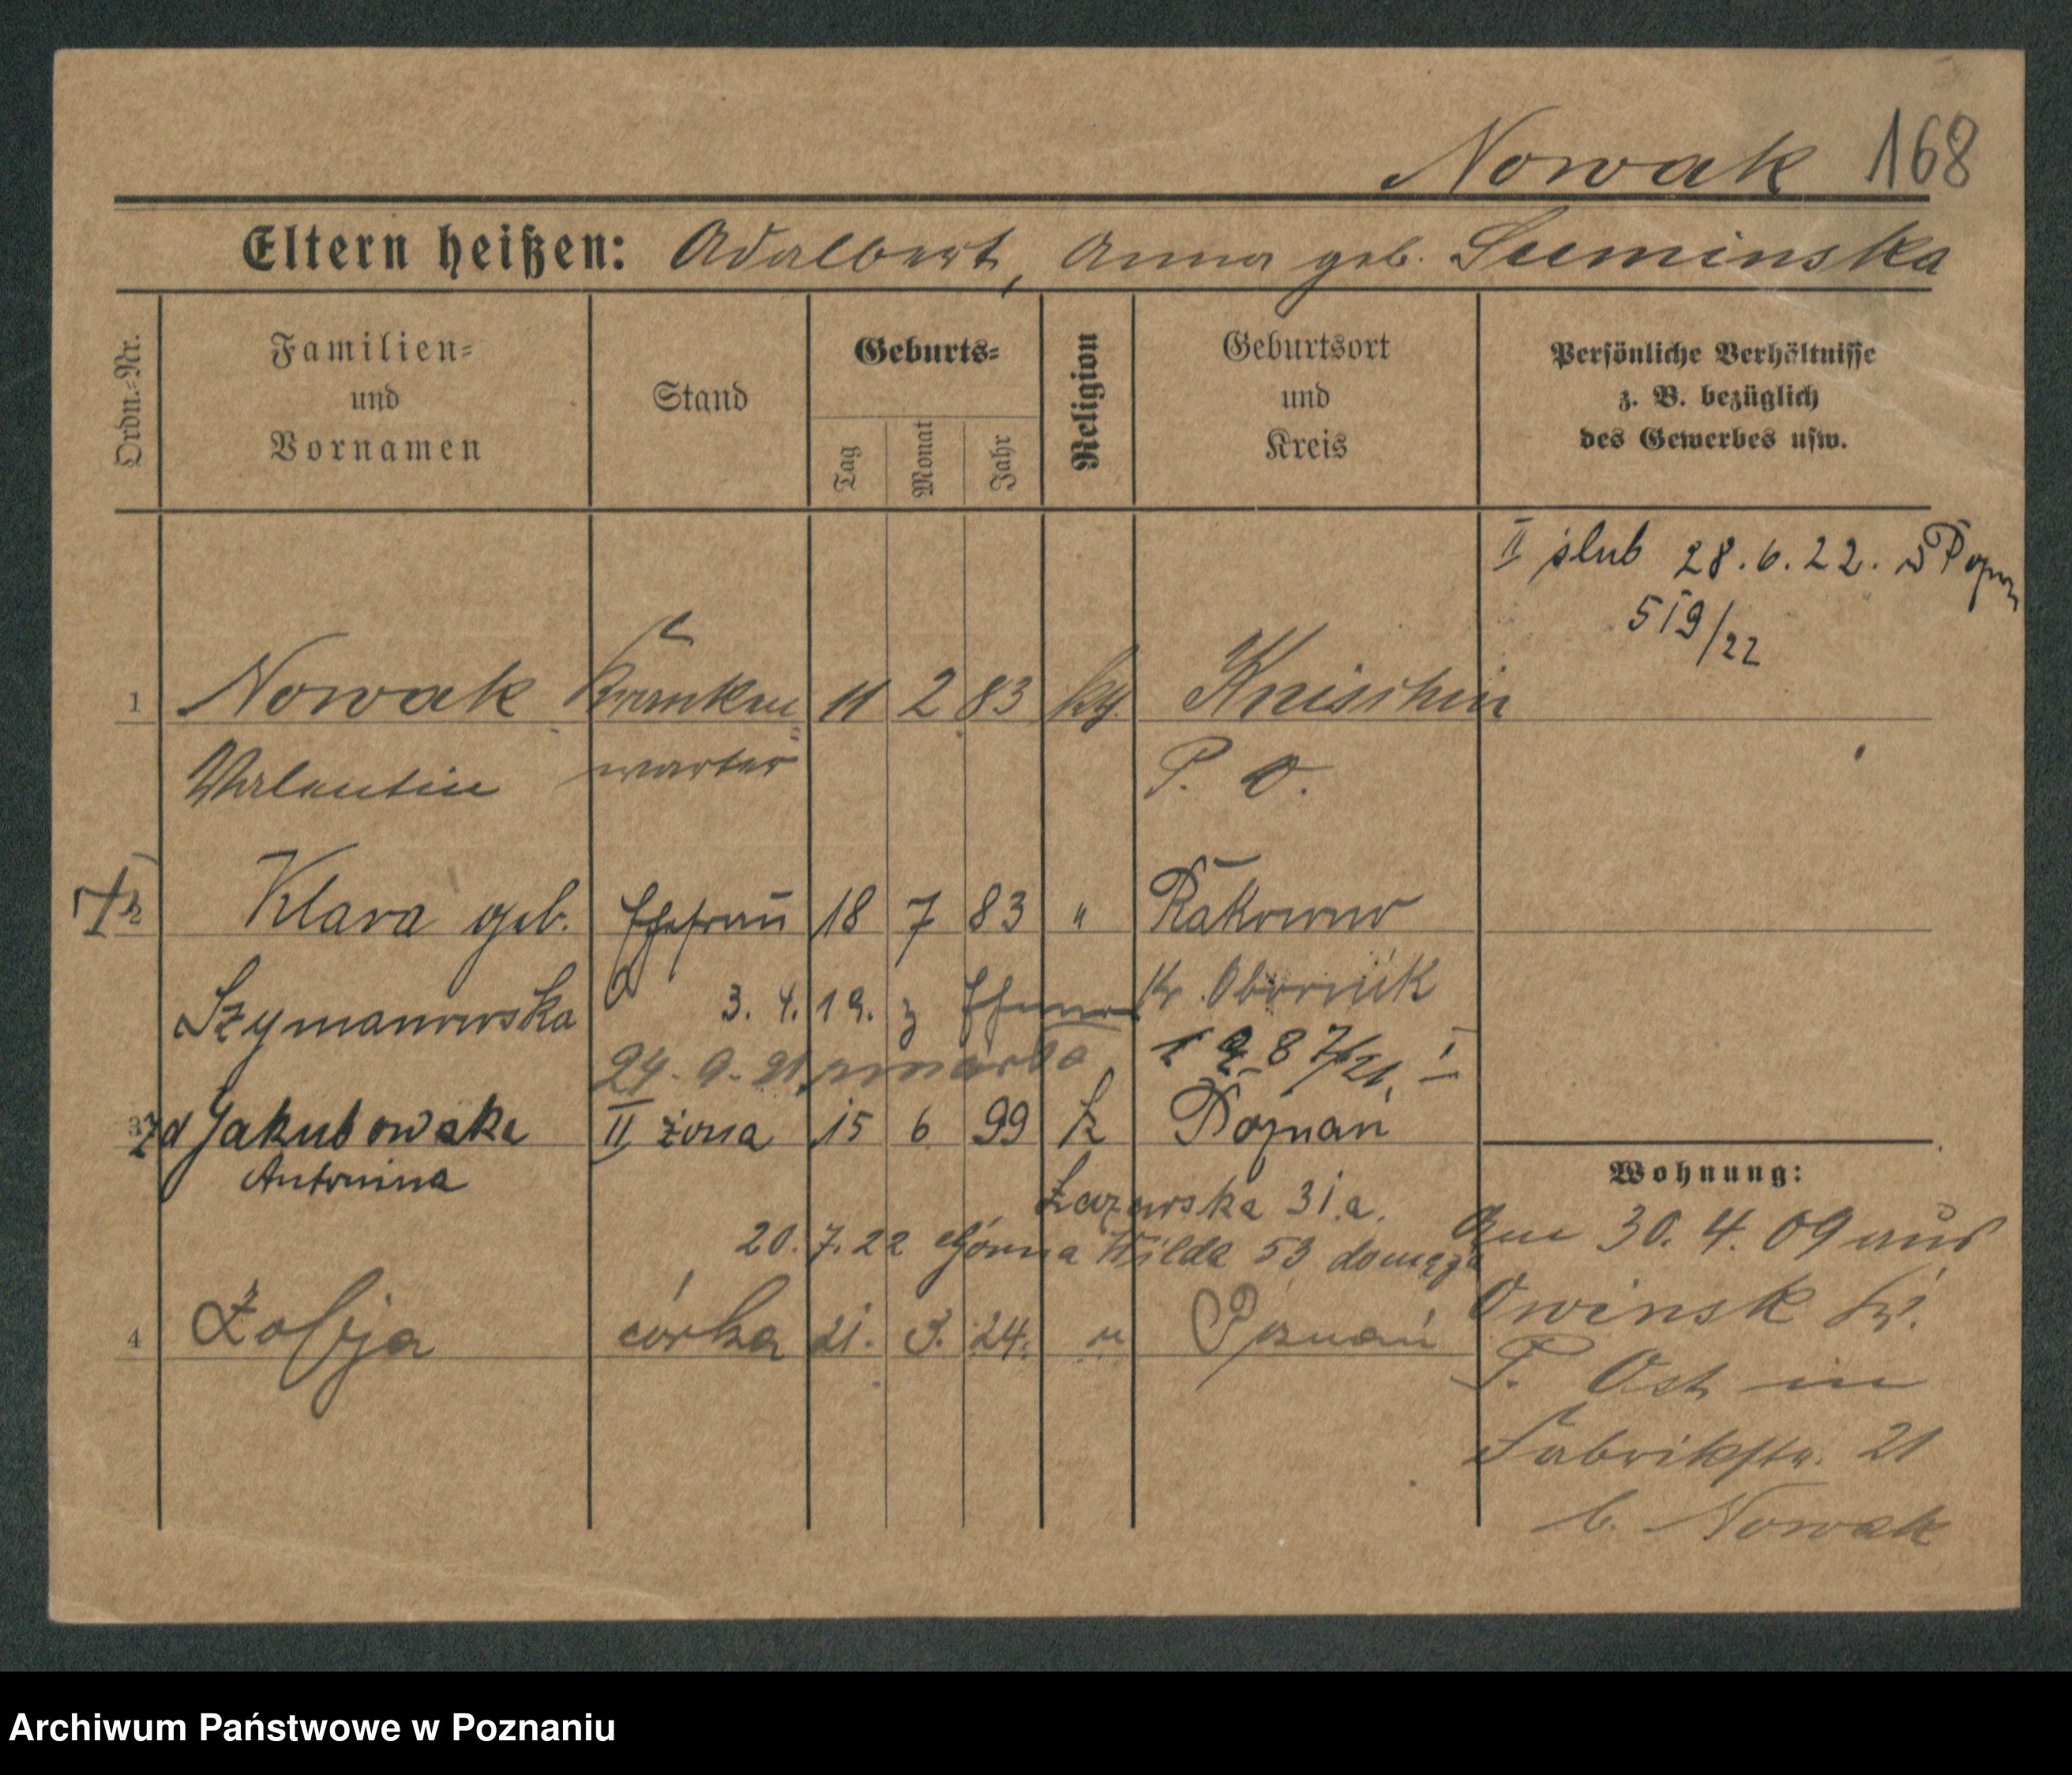 Nowak 168
Eltern heißen: Adalbert, Anna geb. Suminska
Ordn.-Nr.
Familien-
und
Vornamen
Stand
Geburts-
Tag
Monat
Jahr
Religion
Geburtsort
und
Kreis
Persönliche Verhältnisse
z. B. bezüglich
des Gewerbes usw.
II ślub 28.6.22.
519/22
1 Nowak Kranken 11 2 83 Knischin
Valentin wärter P. O.
2 Klara geb. Ehefrau 18 7 83 " Rakowno
Szymanowska Kr. Obornik
3. 4. 19. z
24. 9. 21 zmarła 1287/21. I
3 Jakubowska II żona 15 6 99 k Poznań
Antonina
31.a.
20.7.22 Górna Wilda 53 do męża
4 Zofja córka 21. 3. 24. " Poznań
Wohnung:
Am 30. 4. 09 aus
Owinsk Kr.
P. Ost in
Fabrikstr. 21
b. Nowak
Archiwum Państwowe w Poznaniu